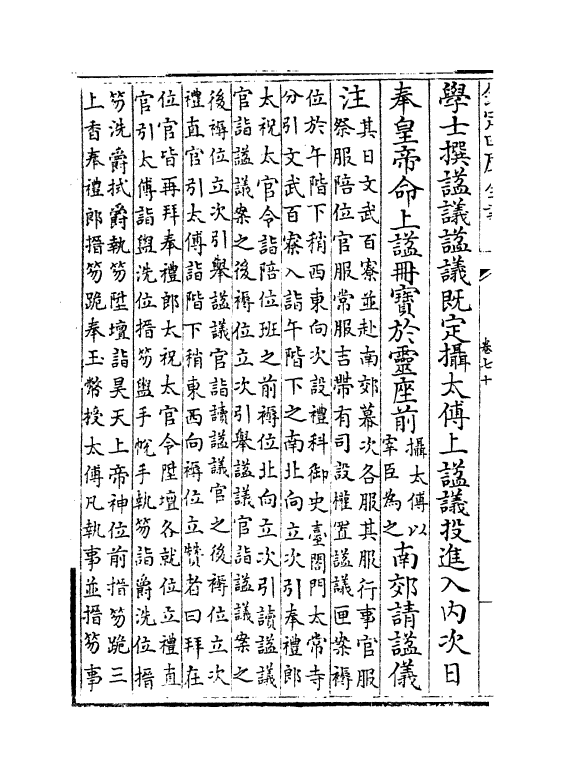 卷七十
學士撰謚議謚議既定攝太傅上謚議投進入内次日
奉皇帝命上謚冊寳於靈座前
攝太傅以
宰臣為之
南郊請謚儀
注
其日文武百寮並赴南郊幕次各服其服行事官服
祭服陪位官服常服吉帶有司設權置謚議匣案褥
位於午階下稍西東向次設禮科御史臺閤門太常寺
分引文武百寮入詣午階下之南北向立次引奉禮郎
太祝太官令詣陪位班之前褥位北向立次引讀謚議
官詣謚議案之後褥位立次引舉謚議官詣謚議案之
後褥位立次引舉謚議官詣讀謚議官之後褥位立次
禮直官引太傅詣階下稍東西向褥位立贊者曰拜在
位官皆再拜奉禮郎太祝太官令陞壇各就位立禮直
官引太傅詣盥洗位搢笏盥手帨手執笏詣爵洗位搢
笏洗爵拭爵執笏陞壇詣昊天上帝神位前搢笏跪三
上香奉禮郎搢笏跪奉玉幣授太傅凡執事並搢笏事